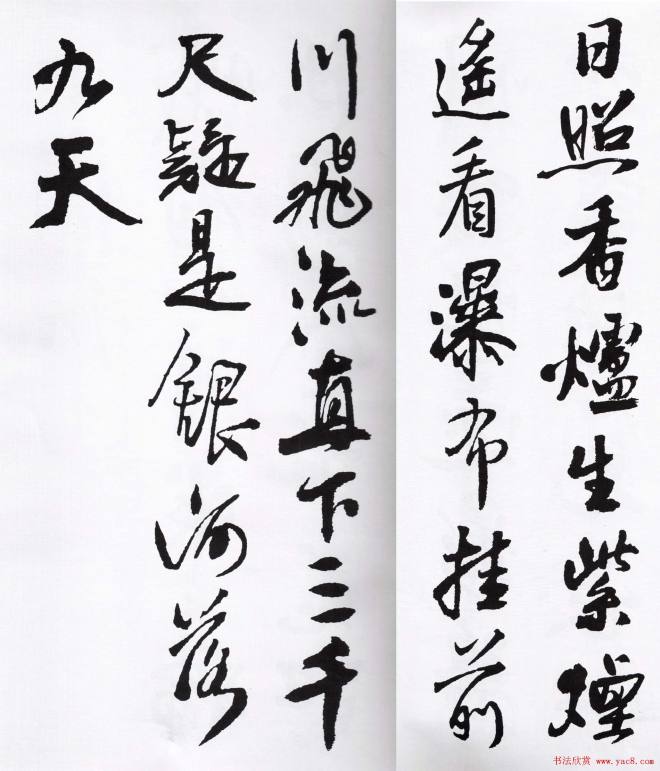 日照香爐生紫煙
遙看瀑布挂前
川飛流直下三千
尺疑是銀河落
九天
书法欣赏 www.yac8.com